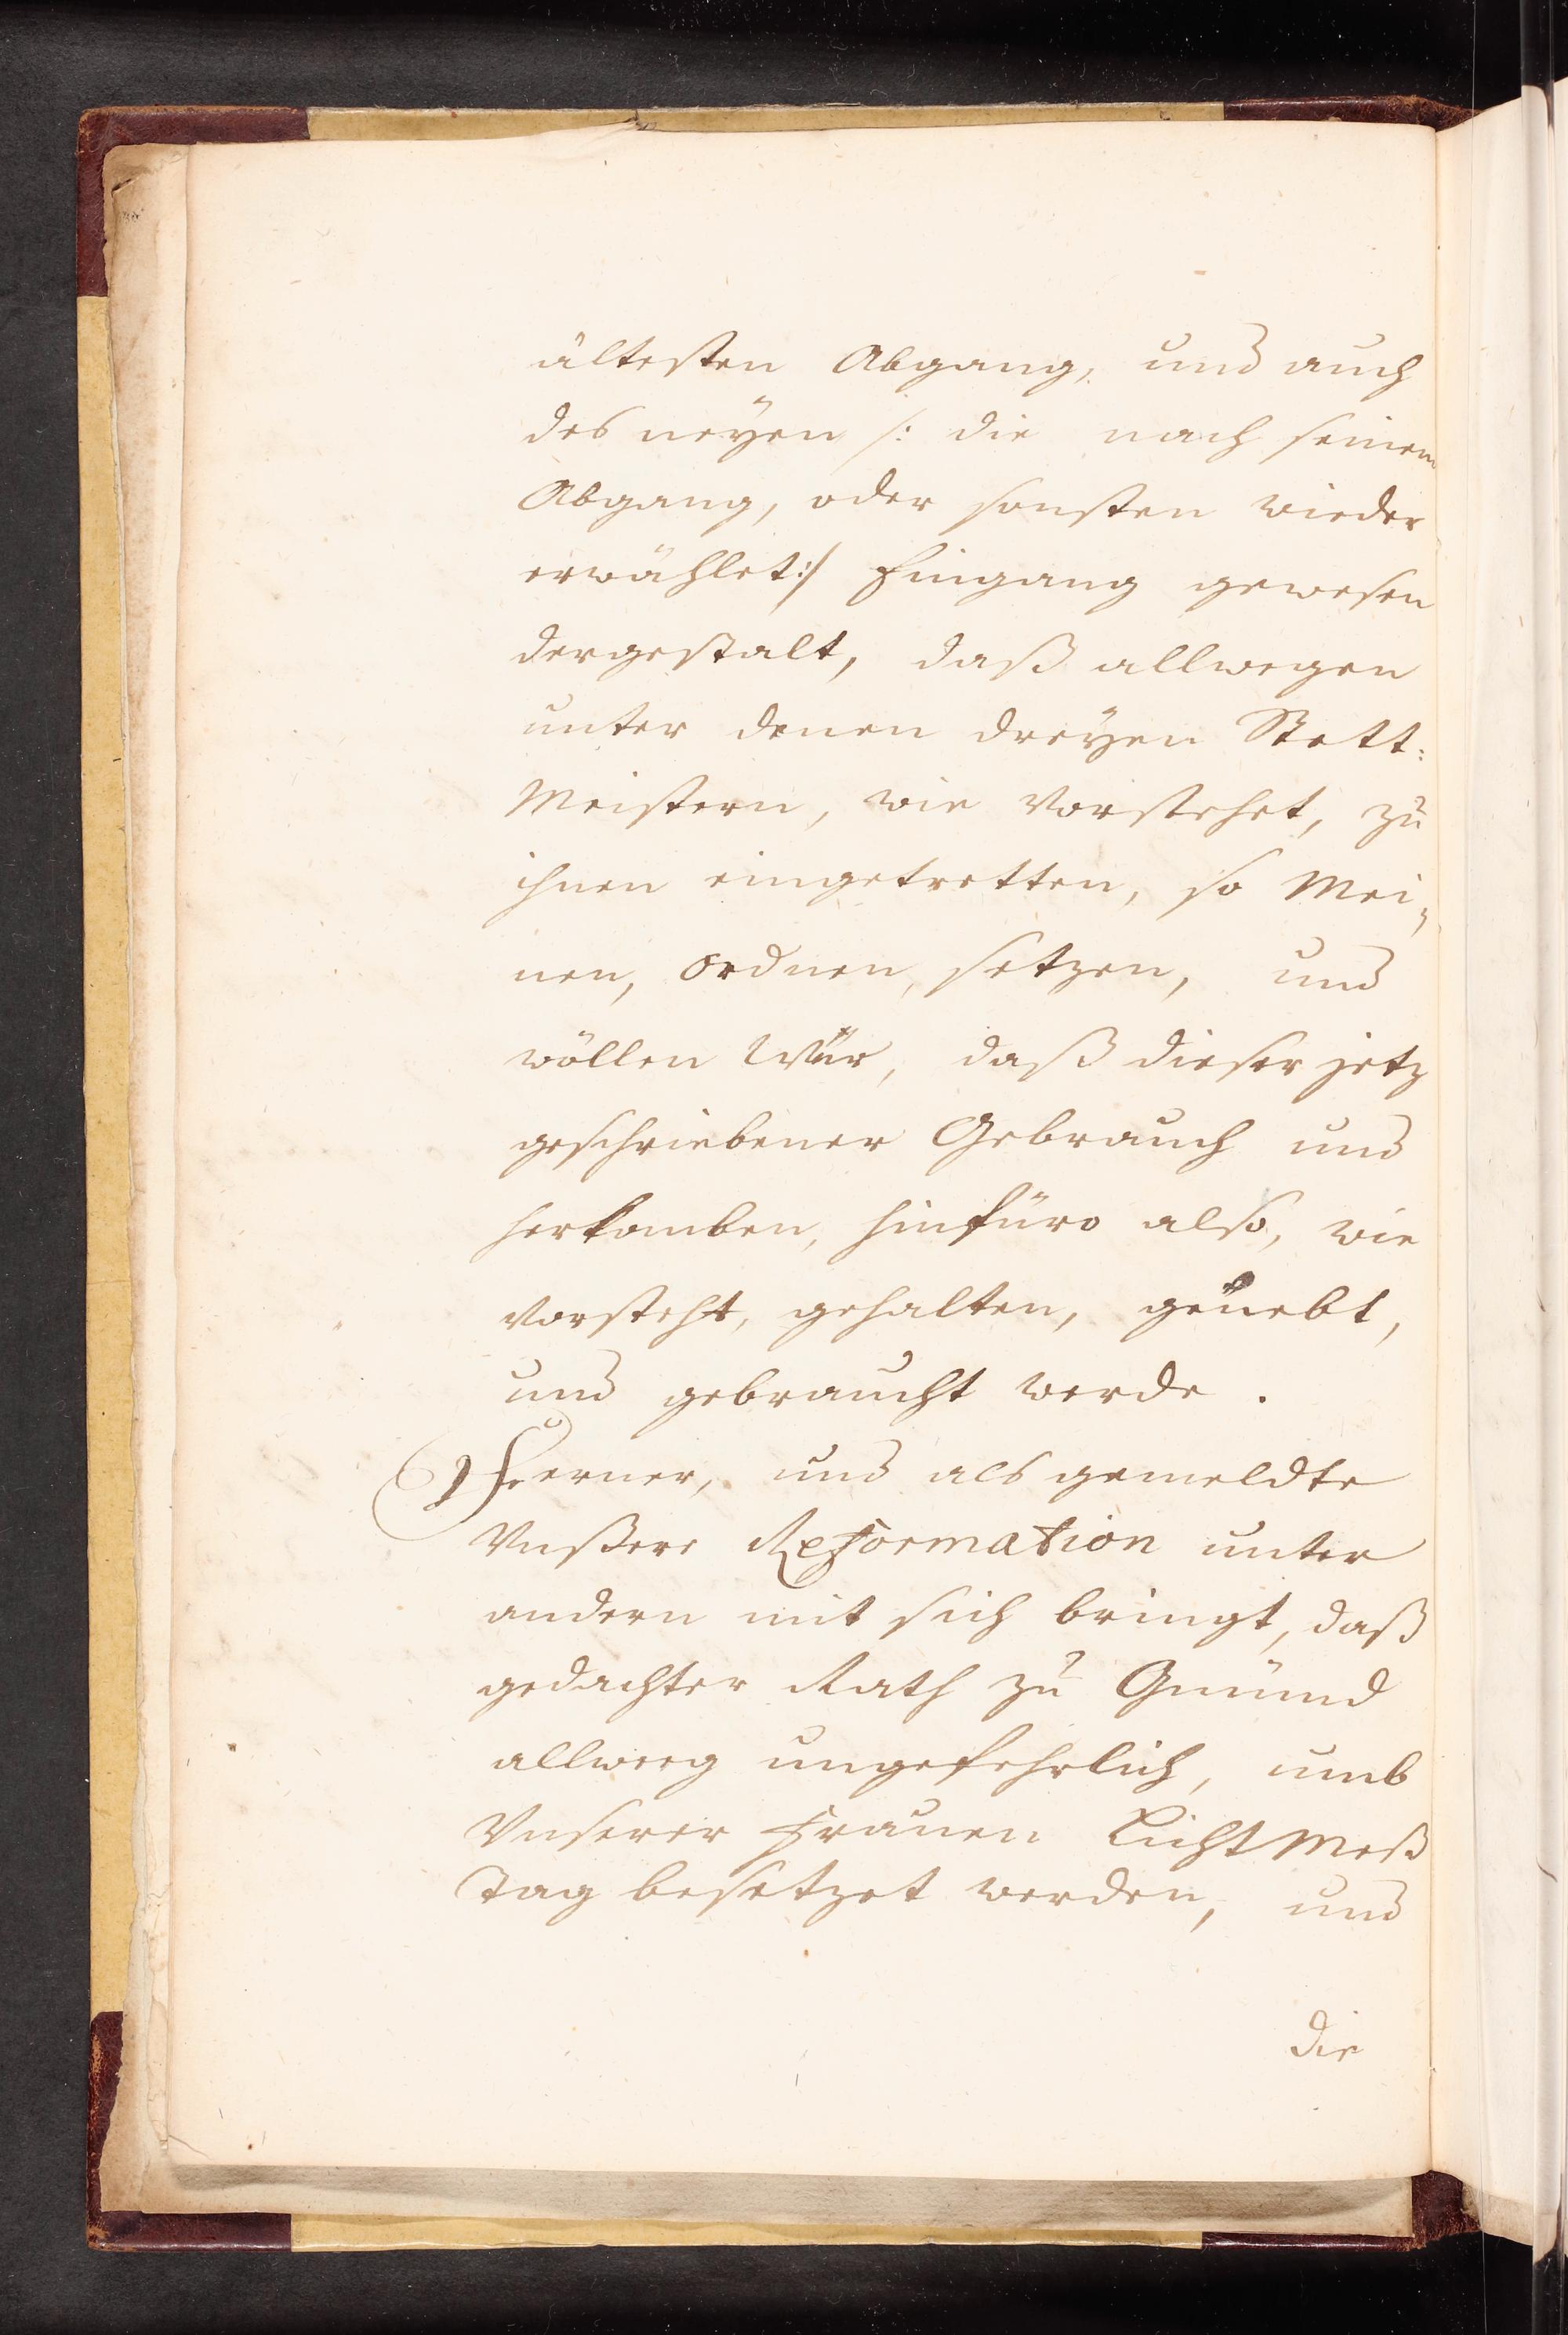 ältesten Abgang, und auch
des neyen /: die nach seinem
Abgang, oder sonsten wieder
erwählet :/ Eingang gewesen
dergestalt, daß allwegen
unter denen dreyen Stett:
Meistern, wie vorstehet, zu
ihnen eingetretten, so Mei,,
nen, ordnen, setzen, und
wöllen Wür, daß dieser jetz
geschriebener Gebrauch und
herkomben, hinfüro also, wie
vorsteht, gehalten, geüebt,
und gebraucht werde .
Ferner, und als gemeldte
Vnßere Reformation unter
andern mit sich bringt, daß
gedachter Rath zu Gmünd
allweeg ungefehrlich, umb
Vnserer Frauen Licht Meß
Tag besetzet werden, und
die